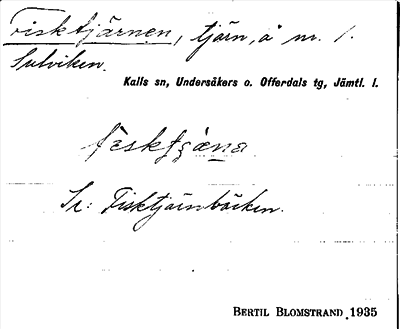 Fisktjärnen, tjärn, å nr. 1.
Sulviken.
Kalls sn, Undersåkers o. Offerdals tg, Jämtl. l.
Se: Fisktjärnbäcken.
BERTIL BLOMSTRAND 1935